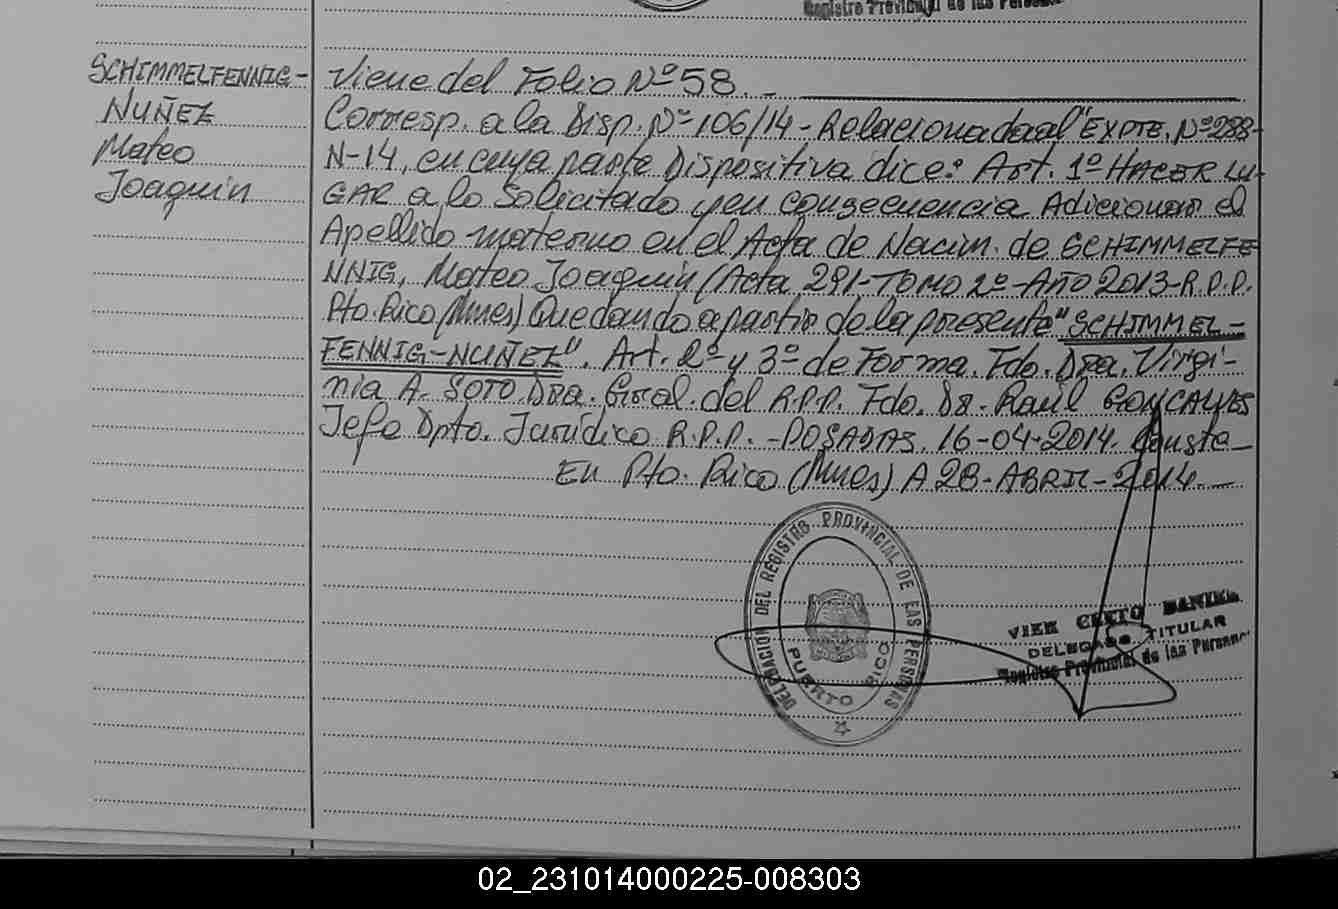 Registro Provincial de las Personas
SCHIMMELFENNIG-
NUÑEZ
Mateo
Joaquin
Viene del Folio Nº 58. _
Corresp. a la Disp. Nº 106/14 - Relacionada al "EXPTE. Nº 288-
N-14, en cuya parte Dispositiva dice: Art. 1º HACER LU-
GAR a lo Solicitado y en consecuencia Adicionar el
Apellido materno en el Acta de Nacim. de SCHIMMELFE
NNIG, Mateo Joaquin (Acta 291-TOMO 2º-AÑO 2013-R.P.P.
Pto. Rico (Mnes) Quedando a partir de la presente "SCHIMMEL-
FENNIG-NUÑEZ". Art. 2º y 3º de Forma. Fdo. Dra. Virgi-
nia A. SOTO Dra. Gral. del R.P.P. Fdo. Dr. Raúl GONCALVES
Jefe Dpto. Jurídico R.P.P. -POSADAS, 16-04-2014. Conste_
En Pto. Rico (Mnes) A 28-ABRIL-2014.__
DELEGACION DEL REGISTRO PROVINCIAL DE LAS PERSONAS
PUERTO RICO
VIER DANIEL
DELEGADO TITULAR
Registro Provincial de las Personas
02_231014000225-008303